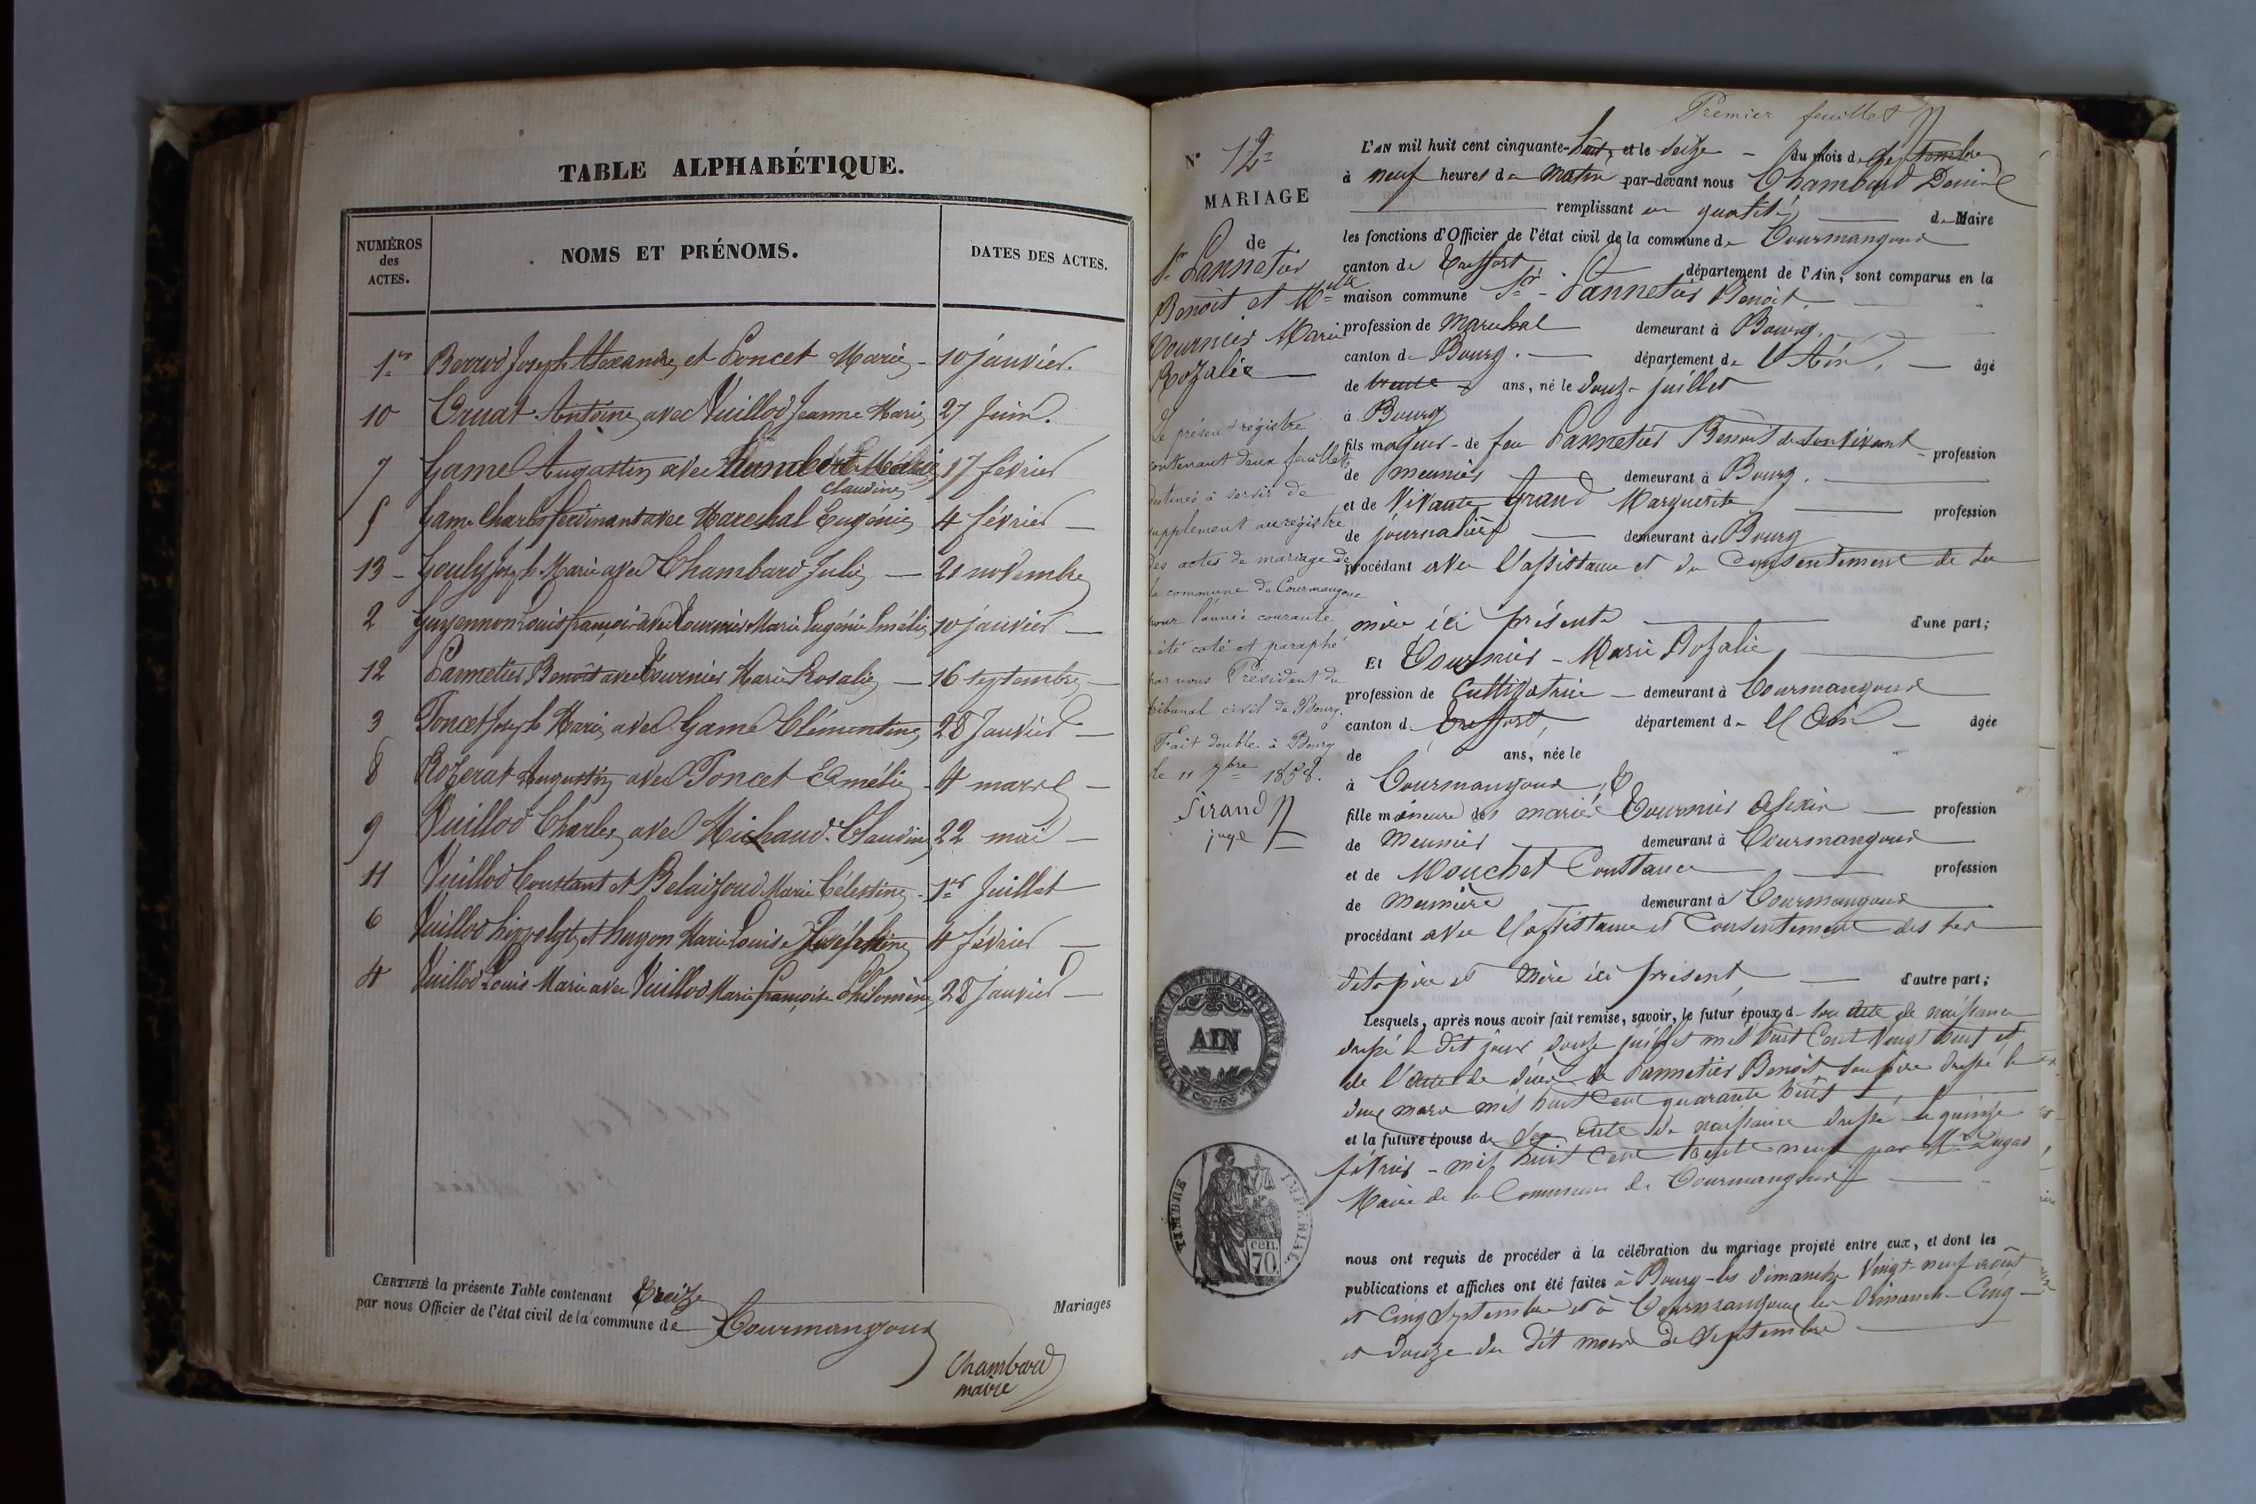 TABLE ALPHABÉTIQUE.
NUMÉROS
des
ACTES.
NOMS ET PRÉNOMS.
DATES DES ACTES.
1er Joseph Alexandre et Poncet Marie 10 janvier.
10 Cruat Antoine avec Vuillod Jeanne Marie 27 Juin.
7 Game Augustin avec 17 février
Claudine
5 Game Charles ferdinant avec Marechal Eugénie 4 février
13 Gouly Joseph Marie avec Chambard Julie 21 novembre
2 Guyennon Louis françois avec Tournier Marie Eugénie 10 janvier
12 Pannetier Benoît avec Tournier Marie Rosalie 16 septembre
3 Poncet Joseph Marie avec Game Clémentine 28 Janvier
8 Rozerat Augustin avec Poncet 4 mars
9 Vuillod Charles avec Michaud Claudine 22 mai
11 Vuillod Constant et Marie Célestine 1er Juillet
6 Vuillod hippolyte et hugon Marie Louise 4 février
4 Vuillod Louis Marie avec Vuillod Marie françoise Philomène 28 janvier
CERTIFIÉ la présente Table contenant Treize Mariages
par nous Officier de l'état civil de la commune de Courmangoux
Chambard
maire
Premier feuillet
N° 12
MARIAGE
de
Sr Pannetier
Benoit et Melle
Tournier Marie
Rozalie
Le présent registre
contenant deux feuillets
destinés à servir de
supplément au registre
des actes de mariage de
la commune de Courmangoux
pour l'année courante
a été coté et paraphé
par nous Président du
tribunal civil de Bourg.
Fait double à Bourg
le 11 7bre 1858.
Sirand
juge
L'AN mil huit cent cinquante-huit, et le seize du mois de Septembre
à neuf heures du matin par-devant nous Chambard
remplissant en qualité de Maire
les fonctions d'Officier de l'état civil de la commune de Courmangoux
canton de Treffort département de l'Ain, sont comparus en la
maison commune Sr Pannetier Benoit
profession de Marechal demeurant à Bourg.
canton de Bourg. département de L'Ain, âgé
de trente ans, né le douze juillet
à Bourg
fils majeur de feu Pannetier Benoit de son vivant profession
de meunier demeurant à Bourg.
et de vivante Grand Marguerite profession
de journalière demeurant à Bourg
procédant avec l'assistance et du Consentement de sa
mère ici présente d'une part;
Et Tournier Marie Rozalie,
profession de Cultivatrice demeurant à Courmangoux
canton de Treffort, département de l'Ain âgée
de ans, née le
à Courmangoux
fille mineure des mariés Tournier Alexis profession
de Meunier demeurant à Courmangoux
et de Mouchet Constance profession
de Meunière demeurant à Courmangoux
procédant avec l'assistance et Consentement des ses
dits père et mère ici présent, d'autre part;
Lesquels, après nous avoir fait remise, savoir, le futur époux de son acte de naissance
dressé le dit jour douze juillet mil huit cent vingt huit et
de l'acte de décès de Pannetier Benoit son père dressé le
deux mars mil huit cent quarante huit
et la future épouse de son acte de naissance dressé le quinze
février mil huit cent trente neuf par Mr
Maire de la Commune de Courmangoux
nous ont requis de procéder à la célébration du mariage projeté entre eux, et dont les
publications et affiches ont été faites à Bourg les dimanche vingt neuf août
et Cinq Septembre et à Courmangoux les dimanche Cinq
et douze du dit mois de Septembre
AIN
TIMBRE IMPERIAL
cen.
70